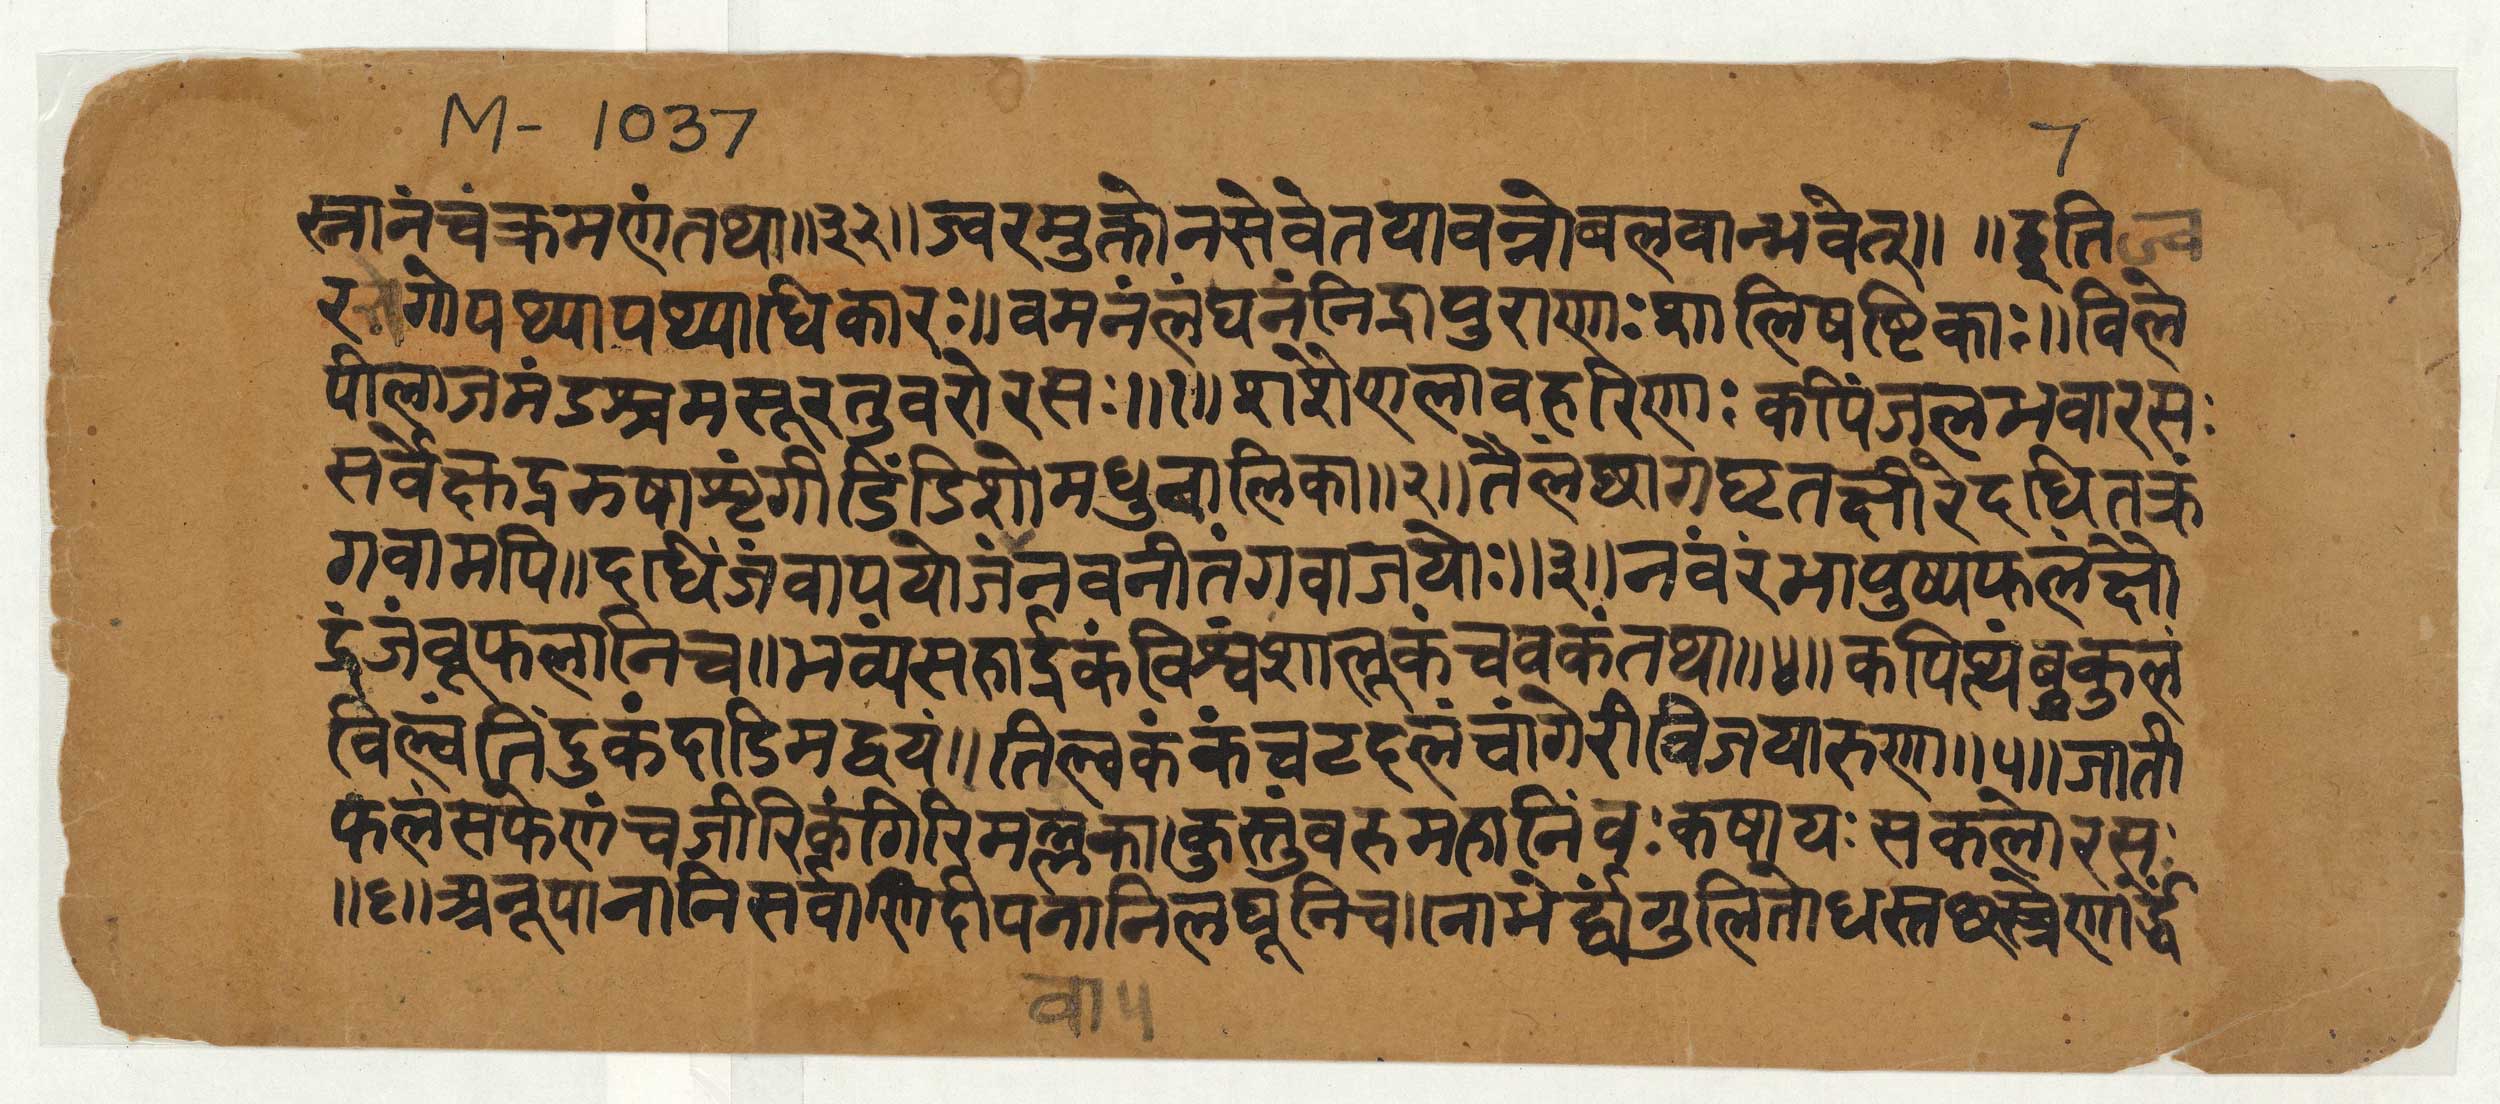 M- 1037
7
स्नानंचंक्रमणंतथा॥३२॥ज्वरमुक्तोनसेवेतयावन्नोबलवान्भवेत्॥ ॥इति ज्व
र गोपथ्यापथ्याधिकारः॥वमनंलंघनंनिद्रापुराणःशालिषष्टिकाः॥विले
पीलाजमंडश्चमसूरतुवरोरसः॥१॥शशेणलावहरिणः कपिंजलभवारसः
सर्वेक्षुद्रझषाशृंगीडिंडिशोमधुबालिका॥२॥तैलंछागघृतक्षीरेदधितक्रं
गवामपि॥दधिजंवापयोजंनवनीतंगवाजयोः॥३॥नवंरंभापुष्पफलंक्षौ
द्रंजंबूफलानिच॥भव्यंसहार्द्रकंविश्वंशालूकंचवकंतथा॥४॥कपित्थंबुकुलं
विल्वंतिंदुकंदाडिमद्वयं॥तिल्वकंकंचटदलंचांगेरीविजयारुणा॥५॥जाती
फलंसफेणंचजीरिकंगिरिमल्लिका।कुस्तुंवरुमहानिंवःकषायःसकलोरसः
॥६॥अनूपानानिसर्वाणिदीपनानिलघूनिच।नाभेर्द्व्यंगुलितोधस्त
वा५